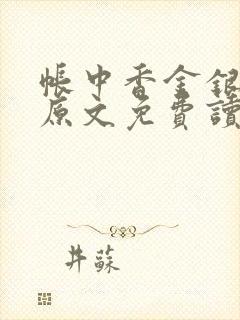 帳中香金銀
原文免費讀
井蘇